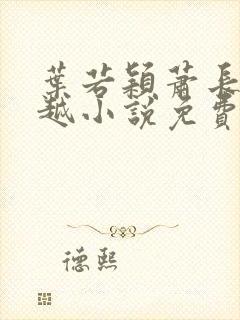 葉若穎蕭長
越小說免費
德熙